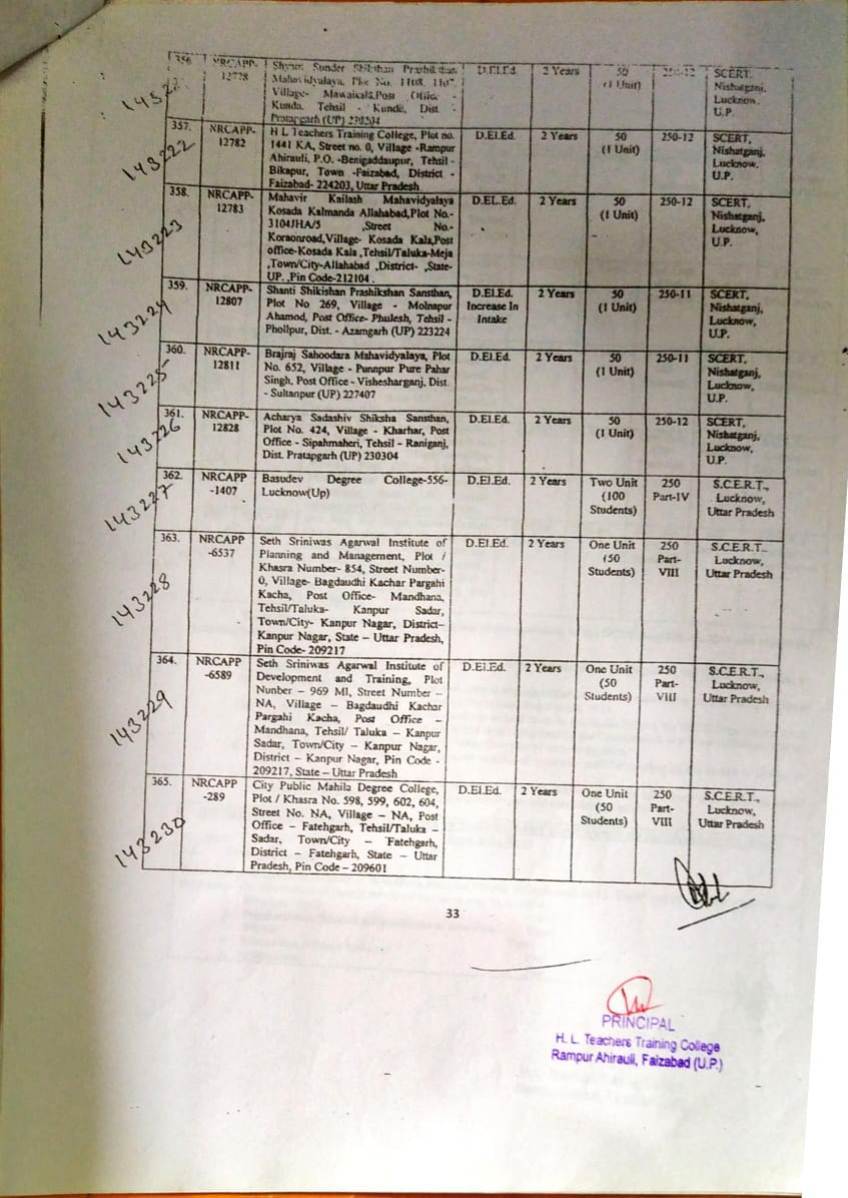 356. NRCAPP- Shyam Sunder Shikshan Prashikshan D.El.Ed. 2 Years 50 250-12 SCERT,
12778 Mahavidyalaya, Plot No. (1 Unit) Nishatganj,
Village- Mawaikala,Post Office - Lucknow,
Kunda, Tehsil - Kunda, Dist. U.P.
Pratapgarh (UP) 230204
143222 357. NRCAPP- H L Teachers Training College, Plot no. D.El.Ed. 2 Years 50 250-12 SCERT,
12782 1441 KA, Street no. 0, Village -Rampur (1 Unit) Nishatganj,
Ahirauli, P.O. -Benigaddaupur, Tehsil - Lucknow,
Bikapur, Town -Faizabad, District - U.P.
Faizabad- 224203, Uttar Pradesh
143223 358. NRCAPP- Mahavir Kailash Mahavidyalaya D.EL.Ed. 2 Years 50 250-12 SCERT,
12783 Kosada Kalmanda Allahabad,Plot No.- (1 Unit) Nishatganj,
3104JHA/5 ,Street No.- Lucknow,
Koraonroad,Village- Kosada Kala,Post U.P.
office-Kosada Kala ,Tehsil/Taluka-Meja
,Town/City-Allahabad ,District- ,State-
UP. ,Pin Code-212104 .
143224 359. NRCAPP- Shanti Shikishan Prashikshan Sansthan, D.El.Ed. 2 Years 50 250-11 SCERT,
12807 Plot No 269, Village - Molnapur Increase In (1 Unit) Nishatganj,
Ahamod, Post Office- Phulesh, Tehsil - Intake Lucknow,
Phollpur, Dist. - Azamgarh (UP) 223224 U.P.
143225 360. NRCAPP- Brajraj Sahoodara Mahavidyalaya, Plot D.El.Ed. 2 Years 50 250-11 SCERT,
12811 No. 652, Village - Punnpur Pure Pahar (1 Unit) Nishatganj,
Singh, Post Office - Vishesharganj, Dist. Lucknow,
- Sultanpur (UP) 227407 U.P.
143226 361. NRCAPP- Acharya Sadashiv Shiksha Sansthan, D.El.Ed. 2 Years 50 250-12 SCERT,
12828 Plot No. 424, Village - Kharhar, Post (1 Unit) Nishatganj,
Office - Sipahmaheri, Tehsil - Raniganj, Lucknow,
Dist. Pratapgarh (UP) 230304 U.P.
143227 362. NRCAPP Basudev Degree College-556- D.El.Ed. 2 Years Two Unit 250 S.C.E.R.T.,
-1407 Lucknow(Up) (100 Part-IV Lucknow,
Students) Uttar Pradesh
143228 363. NRCAPP Seth Sriniwas Agarwal Institute of D.El.Ed. 2 Years One Unit 250 S.C.E.R.T.,
-6537 Planning and Management, Plot / (50 Part- Lucknow,
Khasra Number- 854, Street Number- Students) VIII Uttar Pradesh
0, Village- Bagdaudhi Kachar Pargahi
Kacha, Post Office- Mandhana,
Tehsil/Taluka- Kanpur Sadar,
Town/City- Kanpur Nagar, District–
Kanpur Nagar, State – Uttar Pradesh,
Pin Code- 209217
143229 364. NRCAPP Seth Sriniwas Agarwal Institute of D.El.Ed. 2 Years One Unit 250 S.C.E.R.T.,
-6589 Development and Training, Plot (50 Part- Lucknow,
Nunber – 969 MI, Street Number – Students) VIII Uttar Pradesh
NA, Village – Bagdaudhi Kachar
Pargahi Kacha, Post Office –
Mandhana, Tehsil/ Taluka – Kanpur
Sadar, Town/City – Kanpur Nagar,
District – Kanpur Nagar, Pin Code -
209217, State – Uttar Pradesh
143230 365. NRCAPP City Public Mahila Degree College, D.El.Ed. 2 Years One Unit 250 S.C.E.R.T.,
-289 Plot / Khasra No. 598, 599, 602, 604, (50 Part- Lucknow,
Street No. NA, Village – NA, Post Students) VIII Uttar Pradesh
Office – Fatehgarh, Tehsil/Taluka –
Sadar, Town/City – Fatehgarh,
District – Fatehgarh, State – Uttar
Pradesh, Pin Code – 209601
33
PRINCIPAL
H. L. Teachers Training College
Rampur Ahirauli, Faizabad (U.P.)